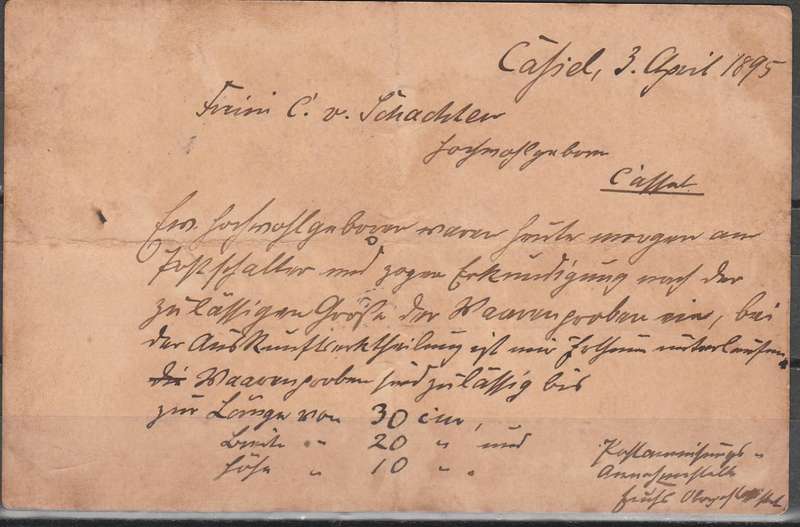 Cassel, 3. April 1895
C. v. Schachten
Hochwohlgeboren
Cassel
Ew. Hochwohlgeboren waren heute morgen am
Postschalter und zogen Erkundigung nach der
zulässigen Größe der Waarenproben ein, bei
der Auskunftsertheilung ist mir Irrthum unterlaufen.
die Waarenproben sind zulässig bis
zur Länge von 30 cm,
Breite " 20 " und
Höhe " 10 " .
Postanweisungs-
Annahmestelle